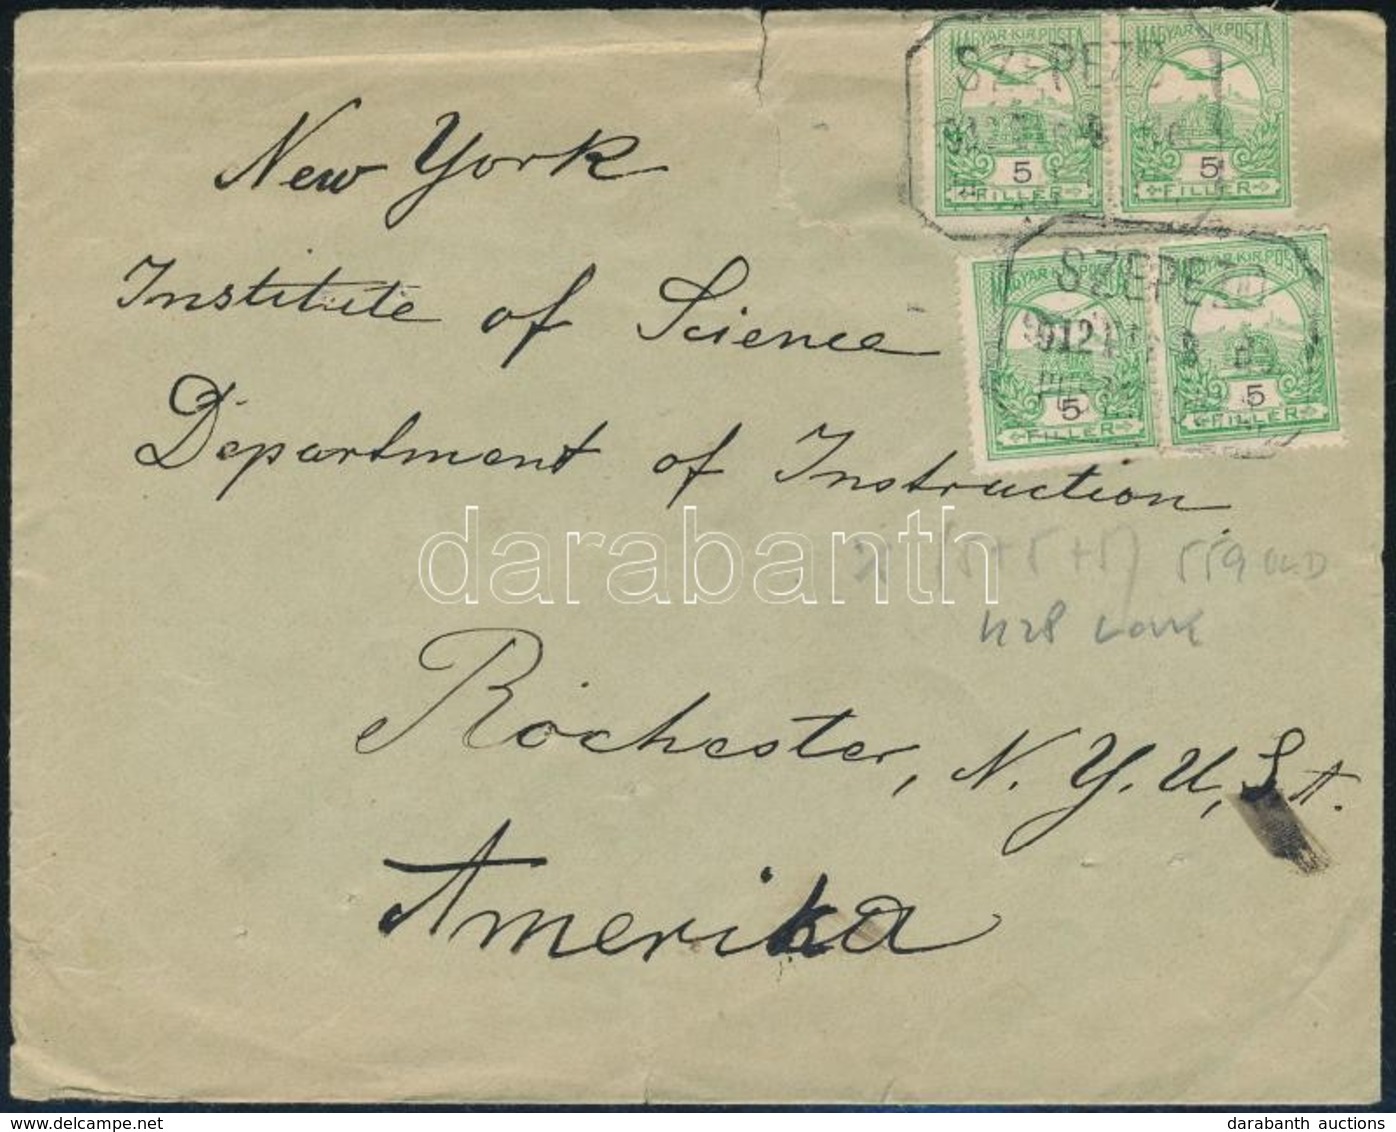 MAGYAR·KIR·POSTA MAGYAR·KIR·POSTA
SZEPEZD
5 5
FILLÉR FILLÉR
New York
Institute of Science
Department of Instruction
MAGYAR·KIR·POSTA MAGYAR·KIR·POSTA
SZEPEZD
912
5 5
FILLÉR FILLÉR
darabanth
(5+5+5) 559
Rochester, N. Y. U, S. A.
Amerika
darabanth auctions